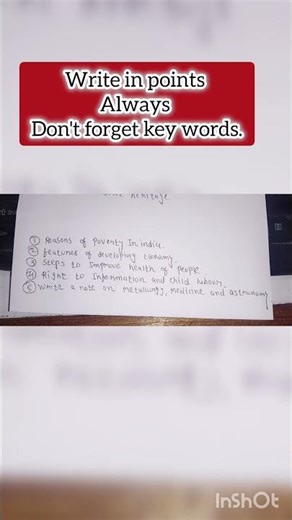 Write in points
Always
Don't forget key words.
Heritage
① Reasons of Poverty In india.
② features of developing Economy.
③ Steps to Improve health of people
④ Right to Information and Child labour.
⑤ Write a note on metallurgy, medicine and astronomy
InShOt